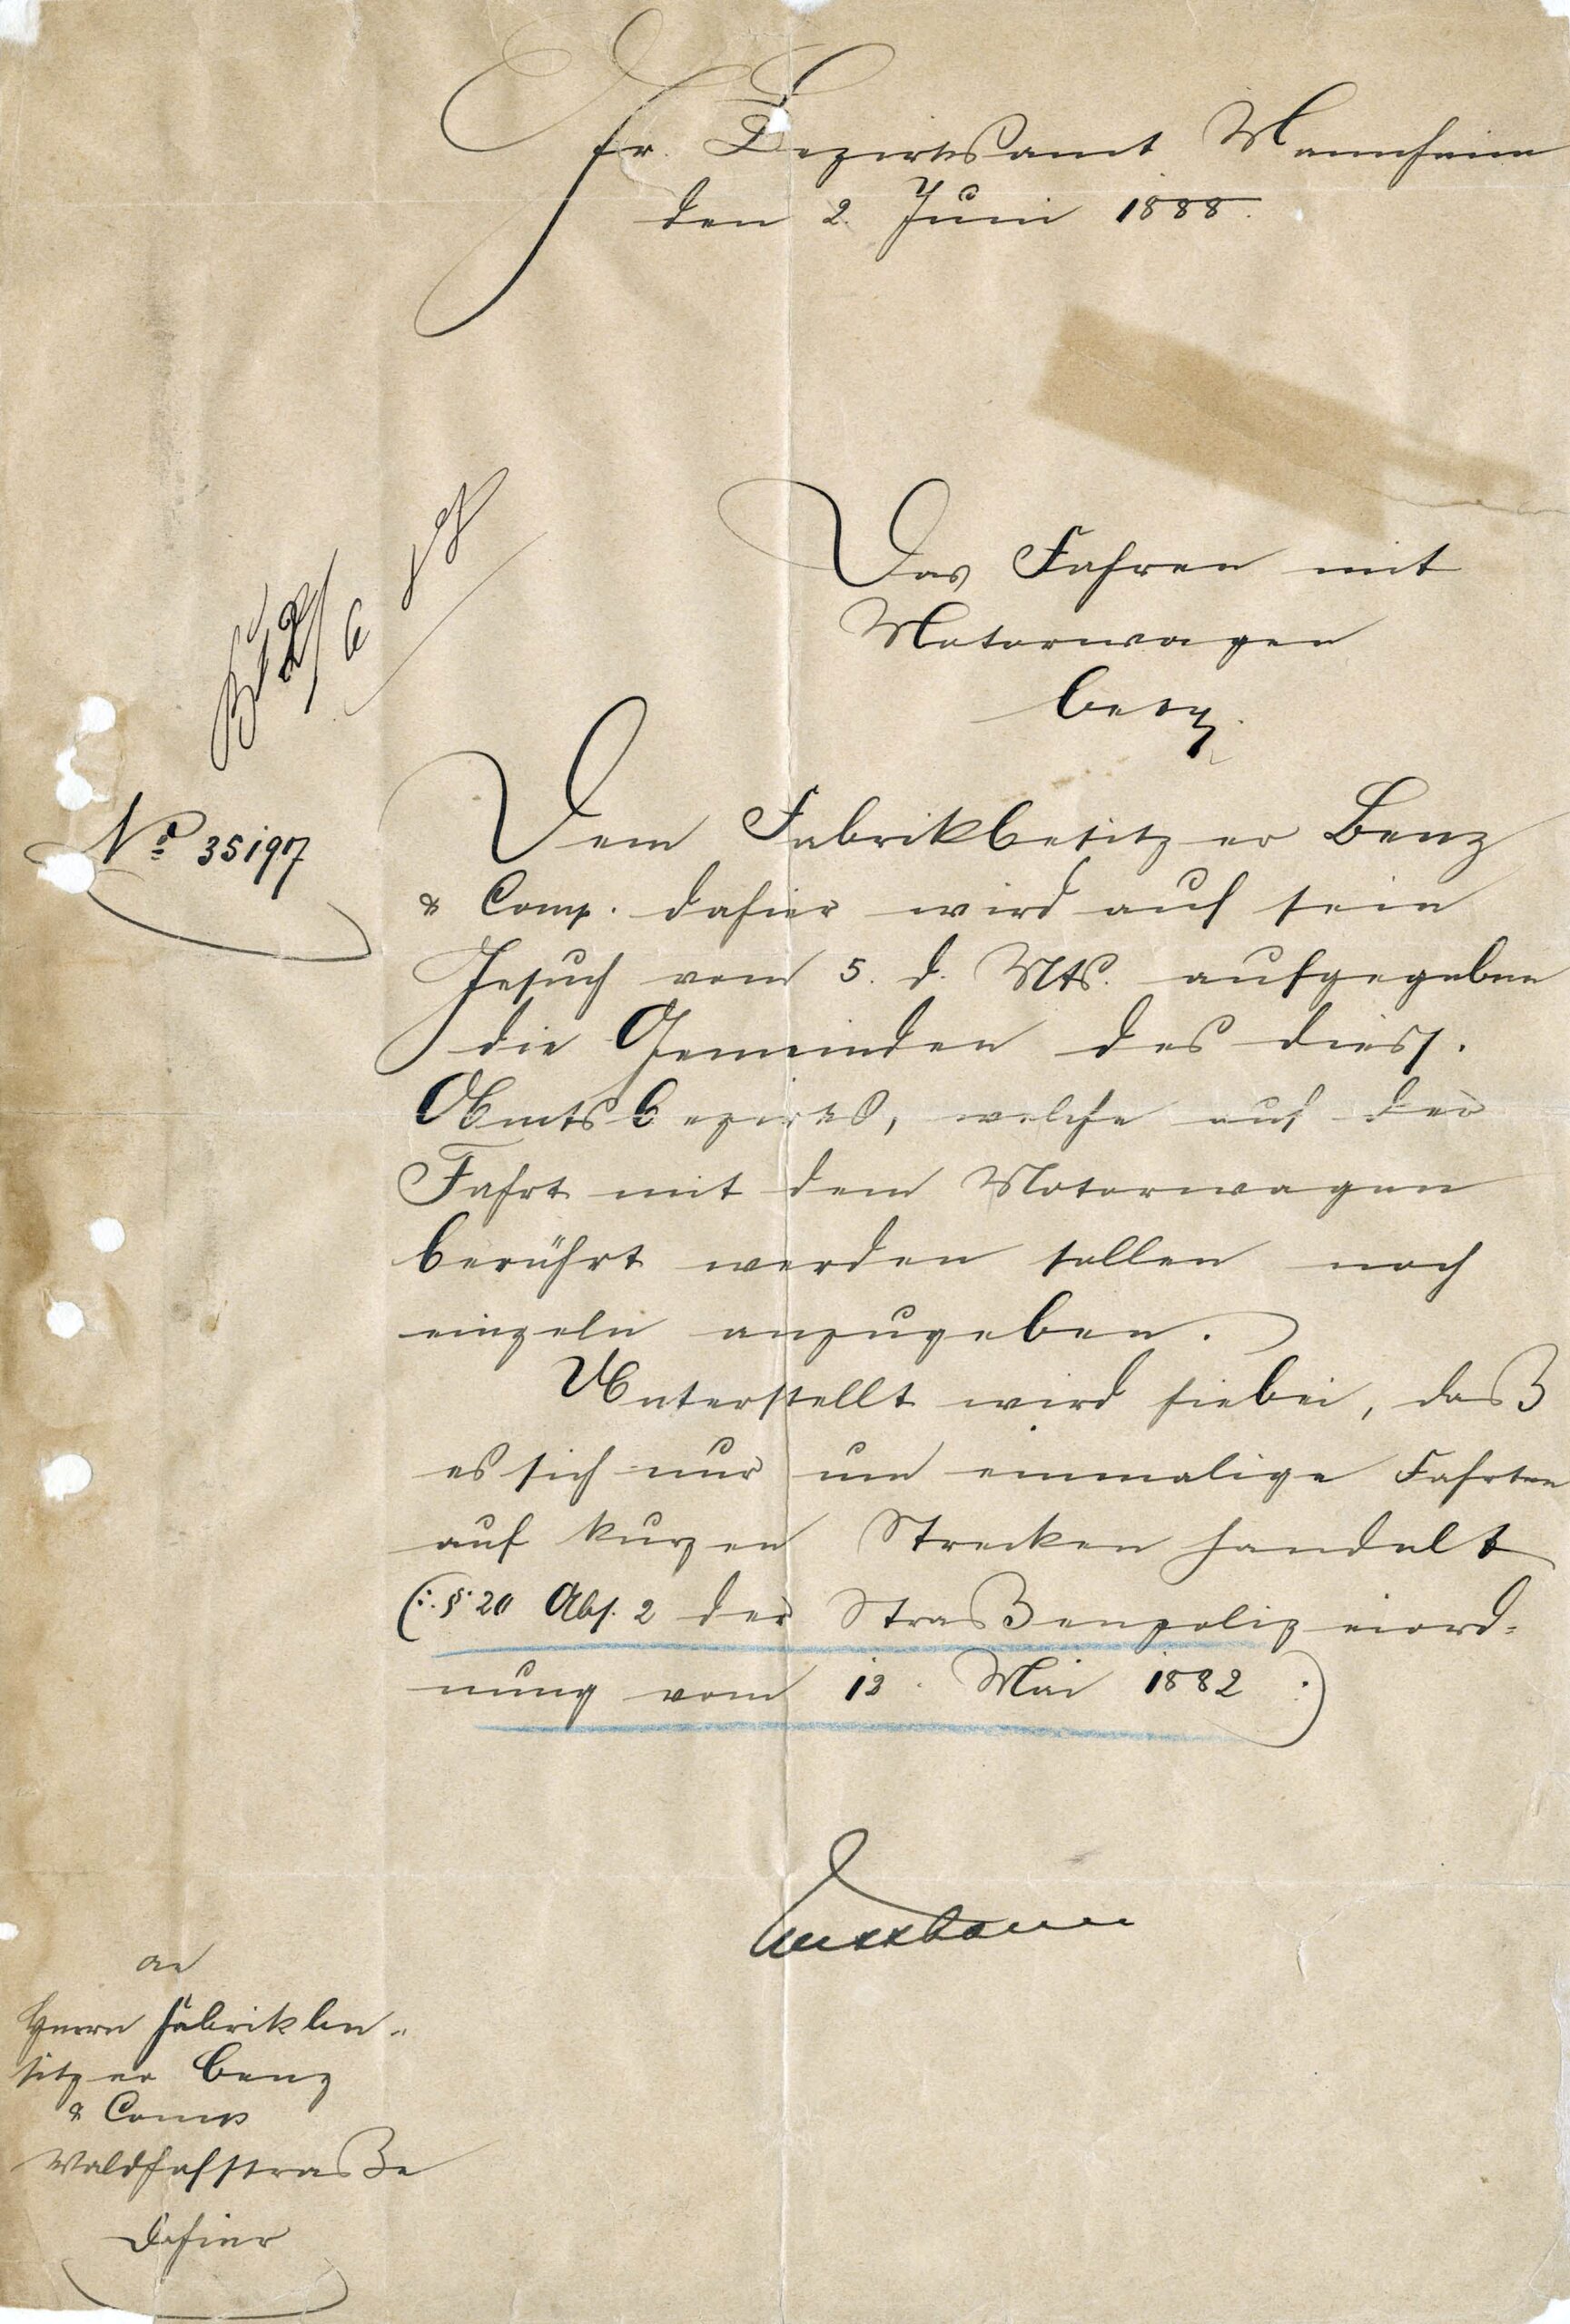 Gr. Bezirksamt Mannheim
den 2. Juni 1888.
Das Fahren mit
Motorwagen
betr.
No 35197
Dem Fabrikbesitzer Benz
& Comp. dahier wird auf sein
Gesuch vom 5. d. Mts. aufgegeben
die Gemeinden des dies.
Amtsbezirks, welche auf der
Fahrt mit dem Motorwagen
berührt werden sollen noch
einzeln anzugeben.
Unterstellt wird hiebei, daß
es sich nur um einmalige Fahrten
auf kurzen Strecken handelt
(: § 20 Abs. 2 der Straßenpolizeiord=
nung vom 12. Mai 1882 :)
An
Herrn Fabrikbe=
sitzer Benz
& Comp
Waldhofstraße
Dahier